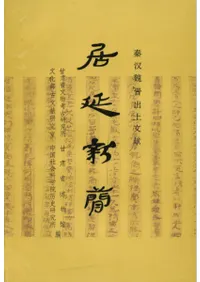 秦汉魏晋出土文献
居延新簡
甘肃省文物考古研究所 甘肃省博物馆
文化部古文献研究室 中国社会科学院历史研究所 编